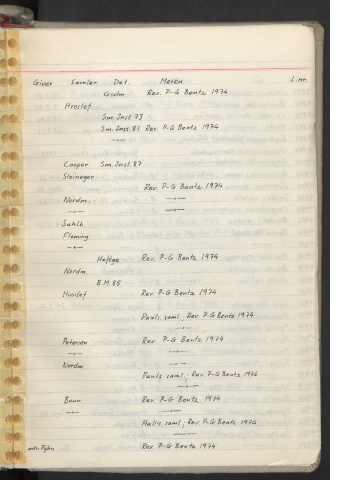 Giver Samler Det. Merkn. L.nr.
Godm Rev. P-G Bentz 1974
Hvoslef
Sm. Inst. 73
Sm. Inst. 87. Rev. P-G Bentz 1974
—"—
Cooper Sm. Inst. 87
Steineger
Rev. P-G Bentz 1974
Nordm. —"—
—"— —"—
Sahlb.
Fleming
—"—
Hæftge Rev. P-G Bentz 1974
Nordm.
B.M. 85
Hvoslef Rev. P-G Bentz 1974
Pauls saml.; Rev. P-G Bentz 1974
—"—
Petersen Rev. P-G Bentz 1974
—"— —"—
Nordm —"—
Pauls saml.; Rev. P-G Bentz 1974
—"—
Baun Rev. P-G Bentz 1974
—"— —"—
Hall's saml.; Rev. P-G Bentz 1974
—"—
Rev. P-G Bentz 1974